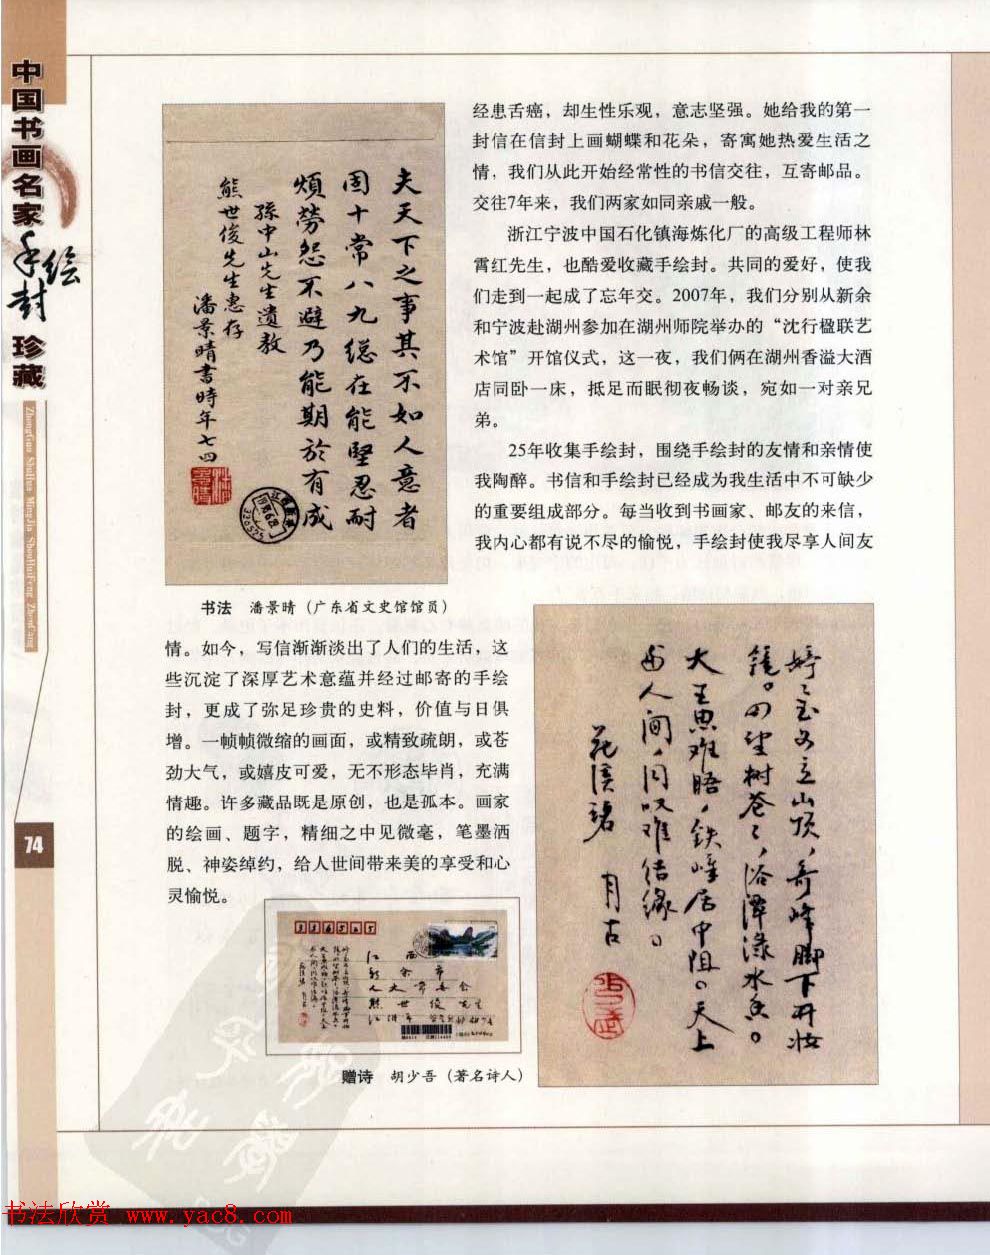 中国书画名家
手绘封
珍藏
ZhongGuo ShuHua MingJia ShouHuiFeng ZhenCang
74
夫天下之事其不如人意者
固十常八九總在能堅忍耐
煩勞怨不避乃能期於有成
孫中山先生遺教
熊世俊先生惠存
潘景晴書時年七四
书法 潘景晴（广东省文史馆馆员）
经患舌癌，却生性乐观，意志坚强。她给我的第一
封信在信封上画蝴蝶和花朵，寄寓她热爱生活之
情，我们从此开始经常性的书信交往，互寄邮品。
交往7年来，我们两家如同亲戚一般。
浙江宁波中国石化镇海炼化厂的高级工程师林
霄红先生，也酷爱收藏手绘封。共同的爱好，使我
们走到一起成了忘年交。2007年，我们分别从新余
和宁波赴湖州参加在湖州师院举办的“沈行楹联艺
术馆”开馆仪式，这一夜，我们俩在湖州香溢大酒
店同卧一床，抵足而眠彻夜畅谈，宛如一对亲兄
弟。
25年收集手绘封，围绕手绘封的友情和亲情使
我陶醉。书信和手绘封已经成为我生活中不可缺少
的重要组成部分。每当收到书画家、邮友的来信，
我内心都有说不尽的愉悦，手绘封使我尽享人间友
情。如今，写信渐渐淡出了人们的生活，这
些沉淀了深厚艺术意蕴并经过邮寄的手绘
封，更成了弥足珍贵的史料，价值与日俱
增。一帧帧微缩的画面，或精致疏朗，或苍
劲大气，或嬉皮可爱，无不形态毕肖，充满
情趣。许多藏品既是原创，也是孤本。画家
的绘画、题字，精细之中见微毫，笔墨洒
脱、神姿绰约，给人世间带来美的享受和心
灵愉悦。
婷婷玉女立山顶，奇峰脚下开妆
镜。四望树苍苍，浴潭渌水香。
大王思难晤，铁嶂居中阻。天上
与人间，同叹难结缘。
江西
新余市
人大常委会
熊世俊先生
赠诗 胡少吾（著名诗人）
书法欣赏 www.yac8.com